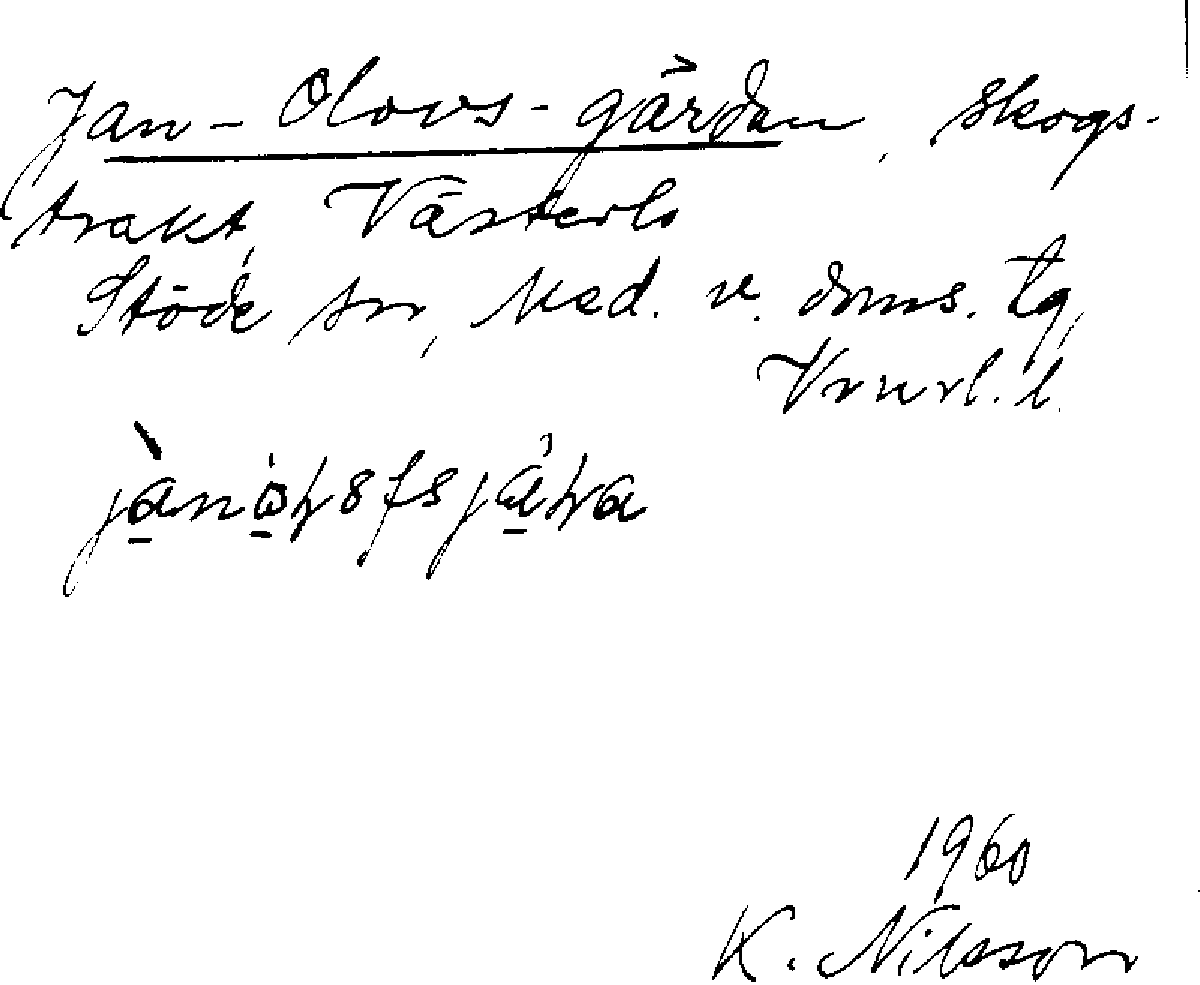 Jan-Olovs-gården, skogs-
trakt, Västerlo
Stöde sn, Med. v. doms. tg,
Vnrl. l.
1960
K. Nilsson